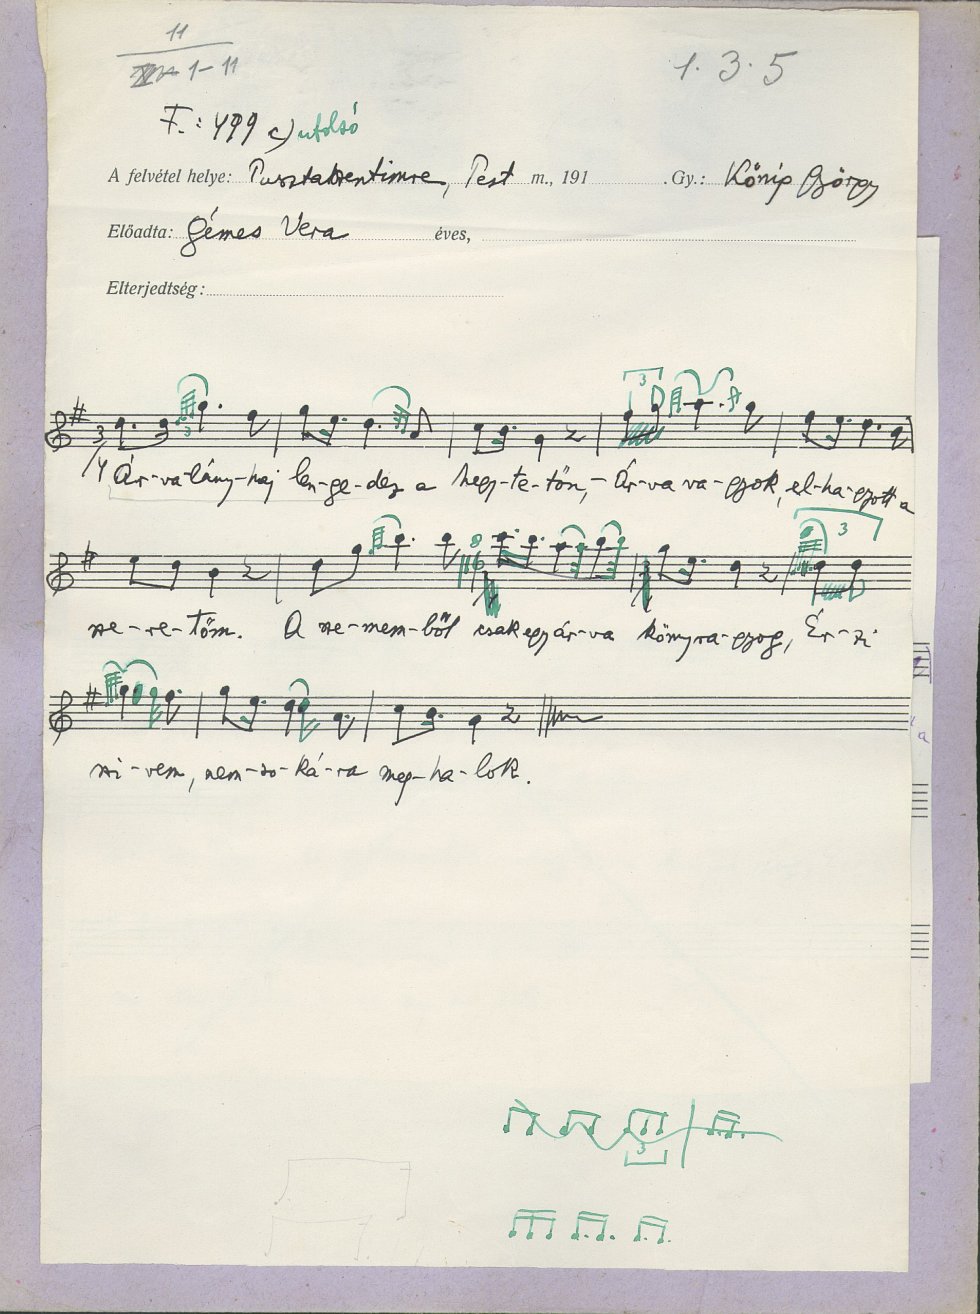 11
1-11
1. 3. 5
F.: 499 c) utolsó
A felvétel helye: Pusztaszentimre, Pest m., 191 . Gy.: König György
Előadta: Gémes Vera éves,
Elterjedtség:
3
3
3/4
Ár-va-lány-haj len-ge-dez a hegy-te-tőn, - Ár-va va-gyok, el-ha-gyott a
8
3
sze-re-tőm. A sze-mem-ből csak egy ár-va köny ra-gyog, Ér-zi
szi-vem, nem-so-ká-ra meg-ha-lok.
3